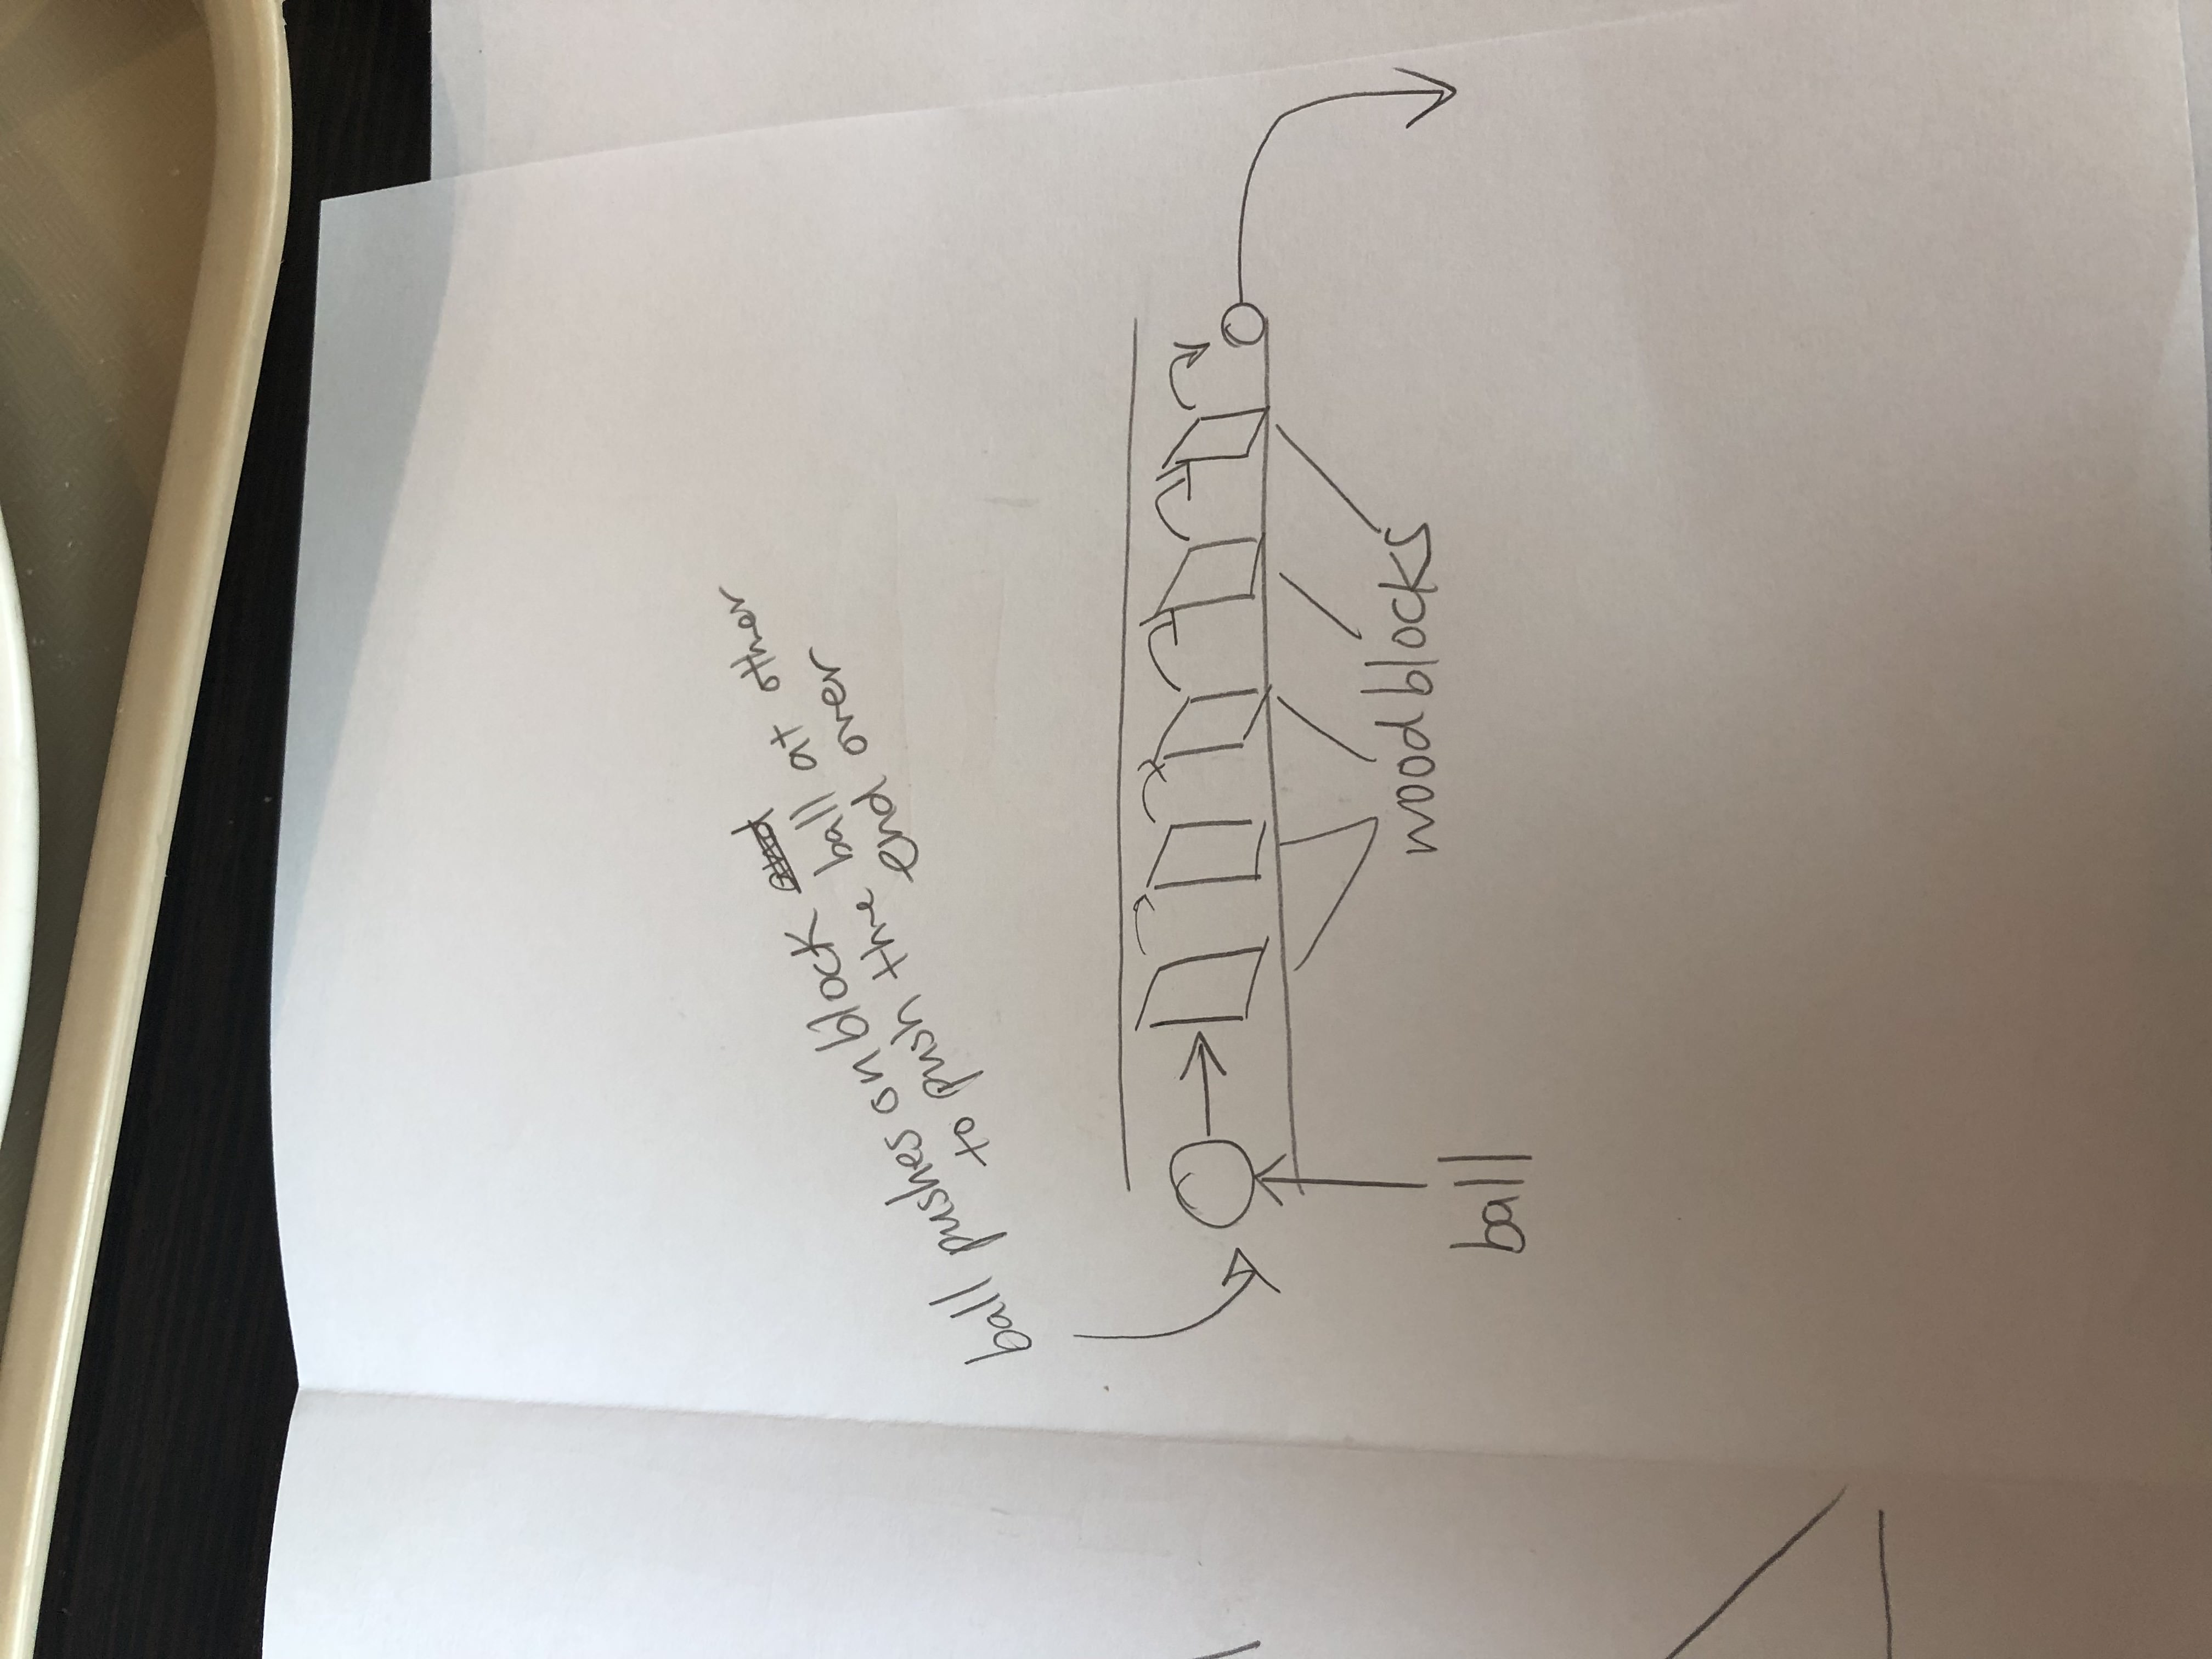 ball pushes on block and
to push the ball at other
end over
wood blocks
ball